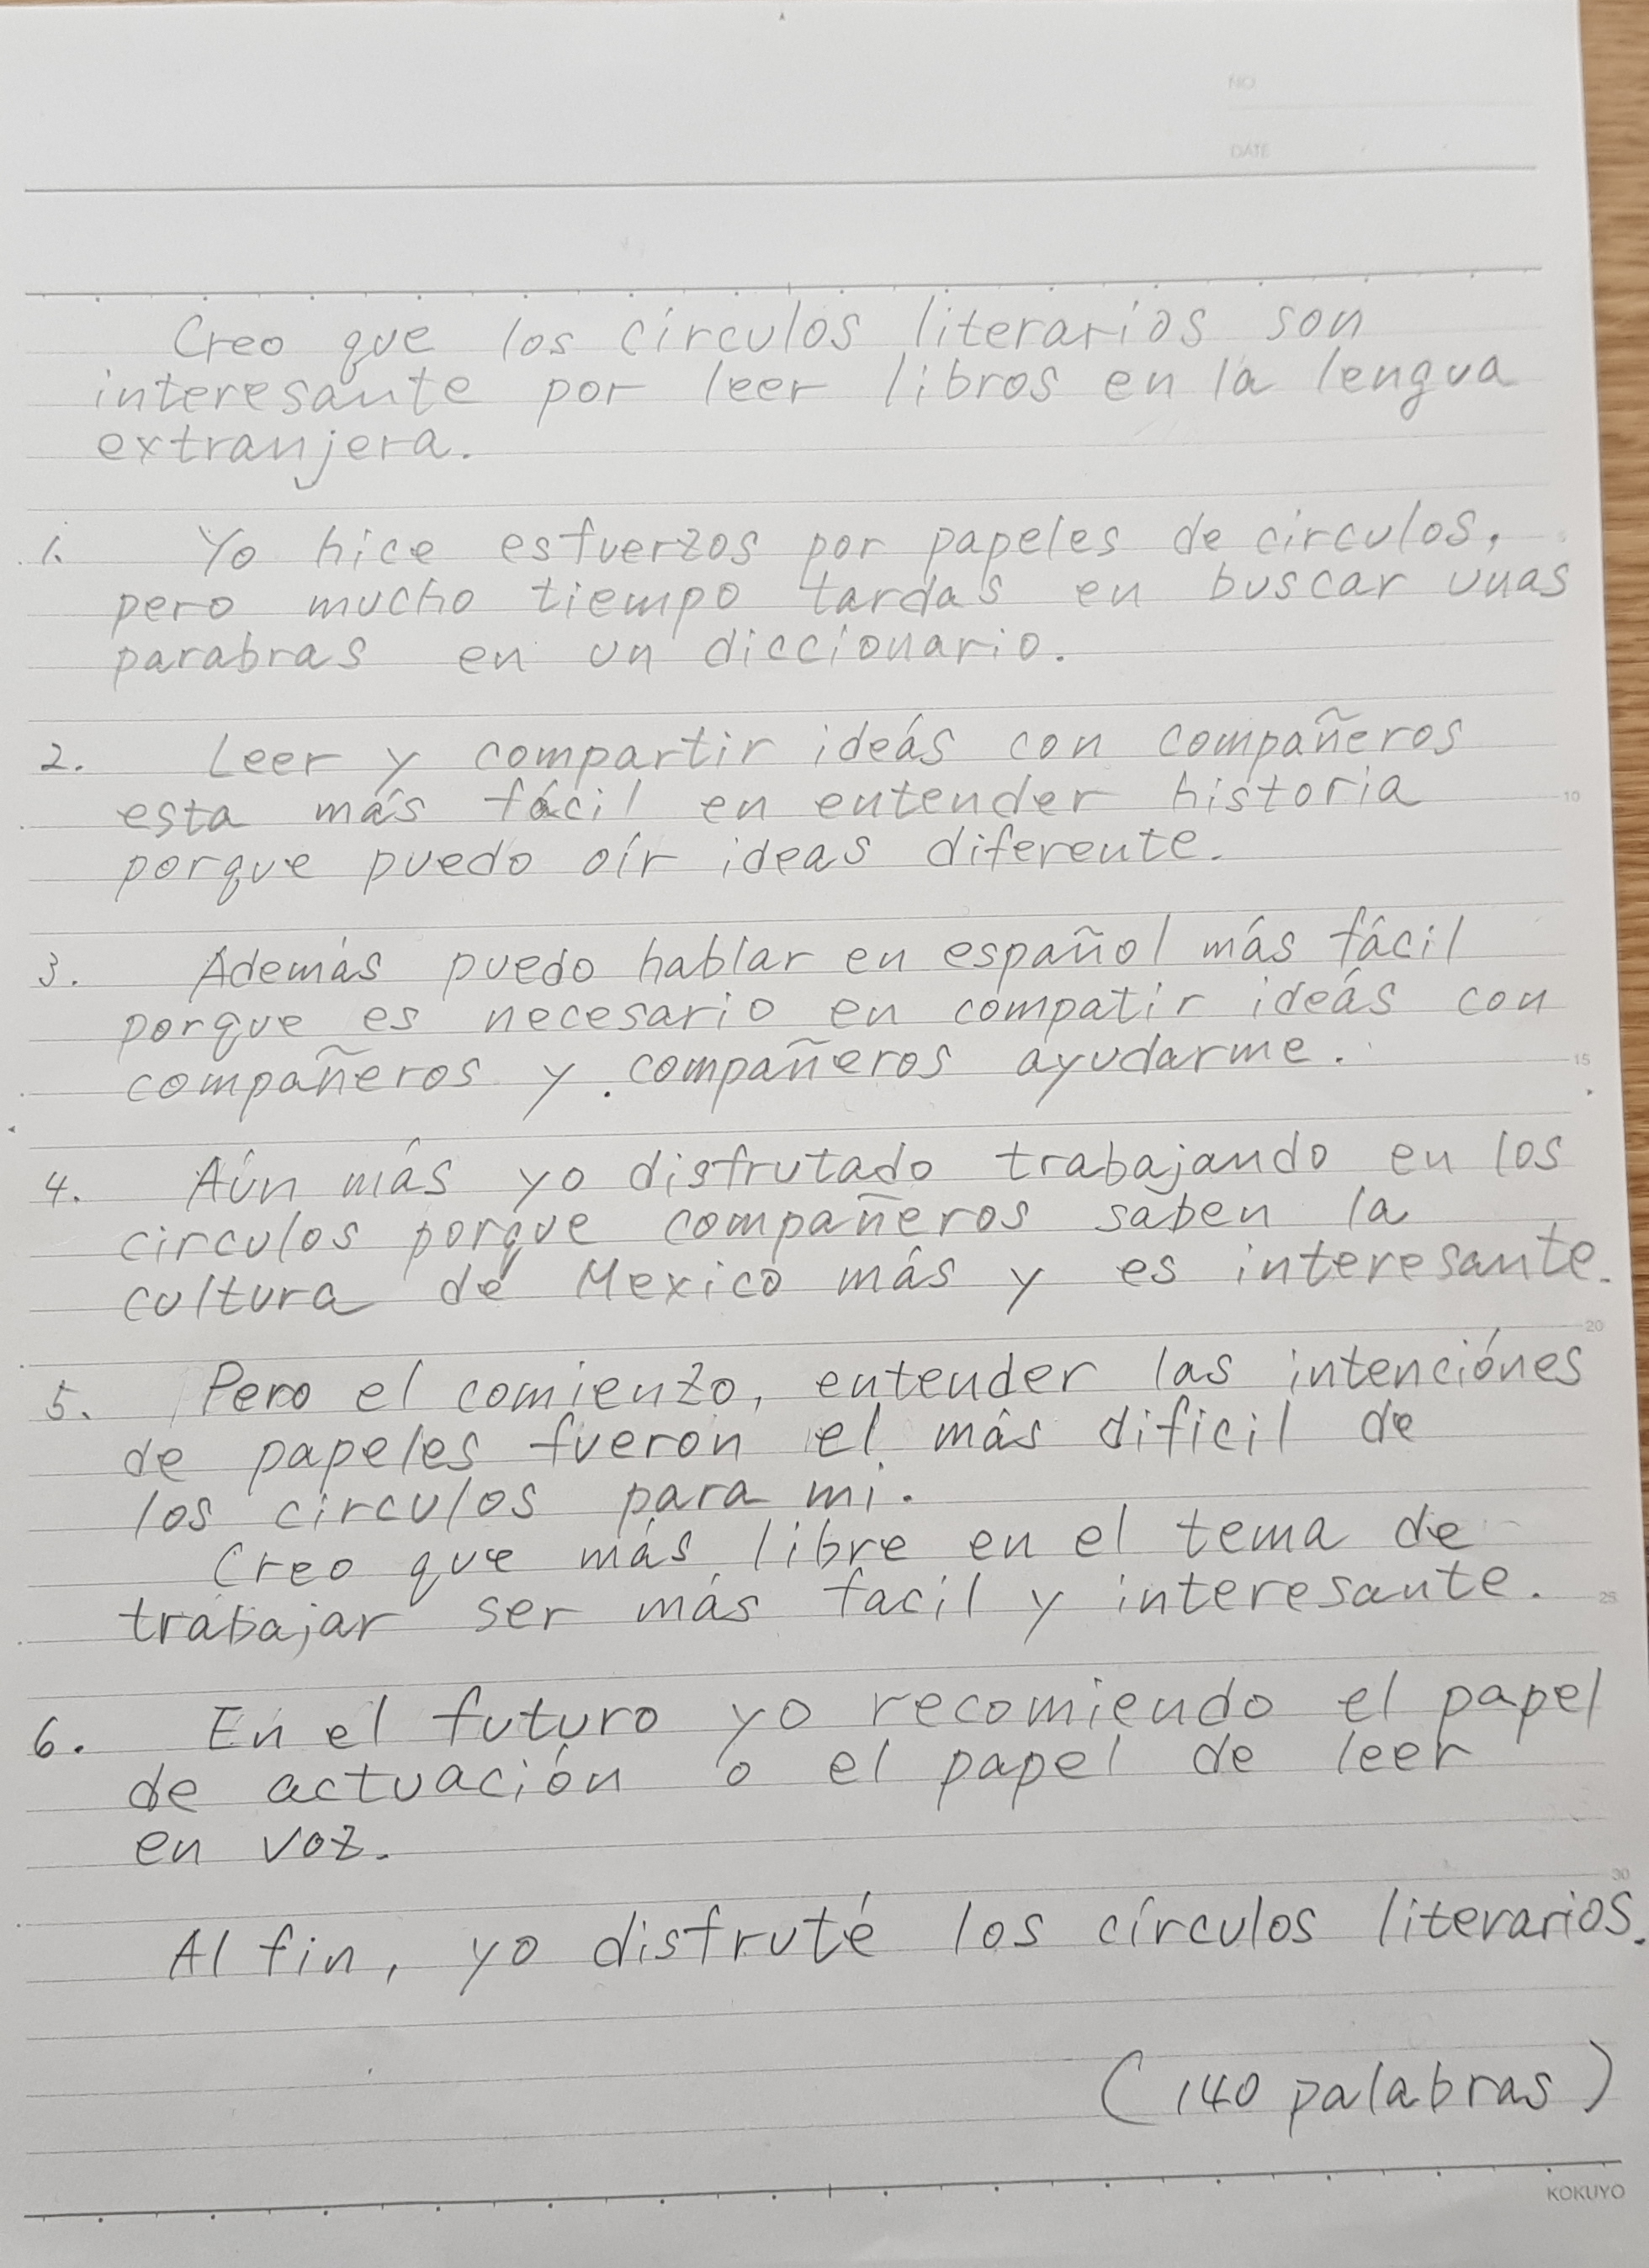 NO
DATE
Creo que los círculos literarios son
interesante por leer libros en la lengua
extranjera.
1. Yo hice esfuerzos por papeles de circulos,
pero mucho tiempo tardas en buscar unas
parabras en un diccionario.
2. Leer y compartir ideás con compañeros
esta más fácil en entender historia
porque puedo oír ideas diferente.
3. Además puedo hablar en español más fácil
porque es necesario en compatir ideás con
compañeros y compañeros ayudarme.
4. Aún más yo disfrutado trabajando en los
circulos porque compañeros saben la
cultura de Mexico más y es interesante.
5. Pero el comienzo, entender las intenciónes
de papeles fueron el más dificil de
los circulos para mi.
Creo que más libre en el tema de
trabajar ser más facil y interesante.
6. En el futuro yo recomiendo el papel
de actuación o el papel de leer
en voz.
Al fin, yo disfruté los círculos literarios.
(140 palabras)
10
15
20
25
30
KOKUYO